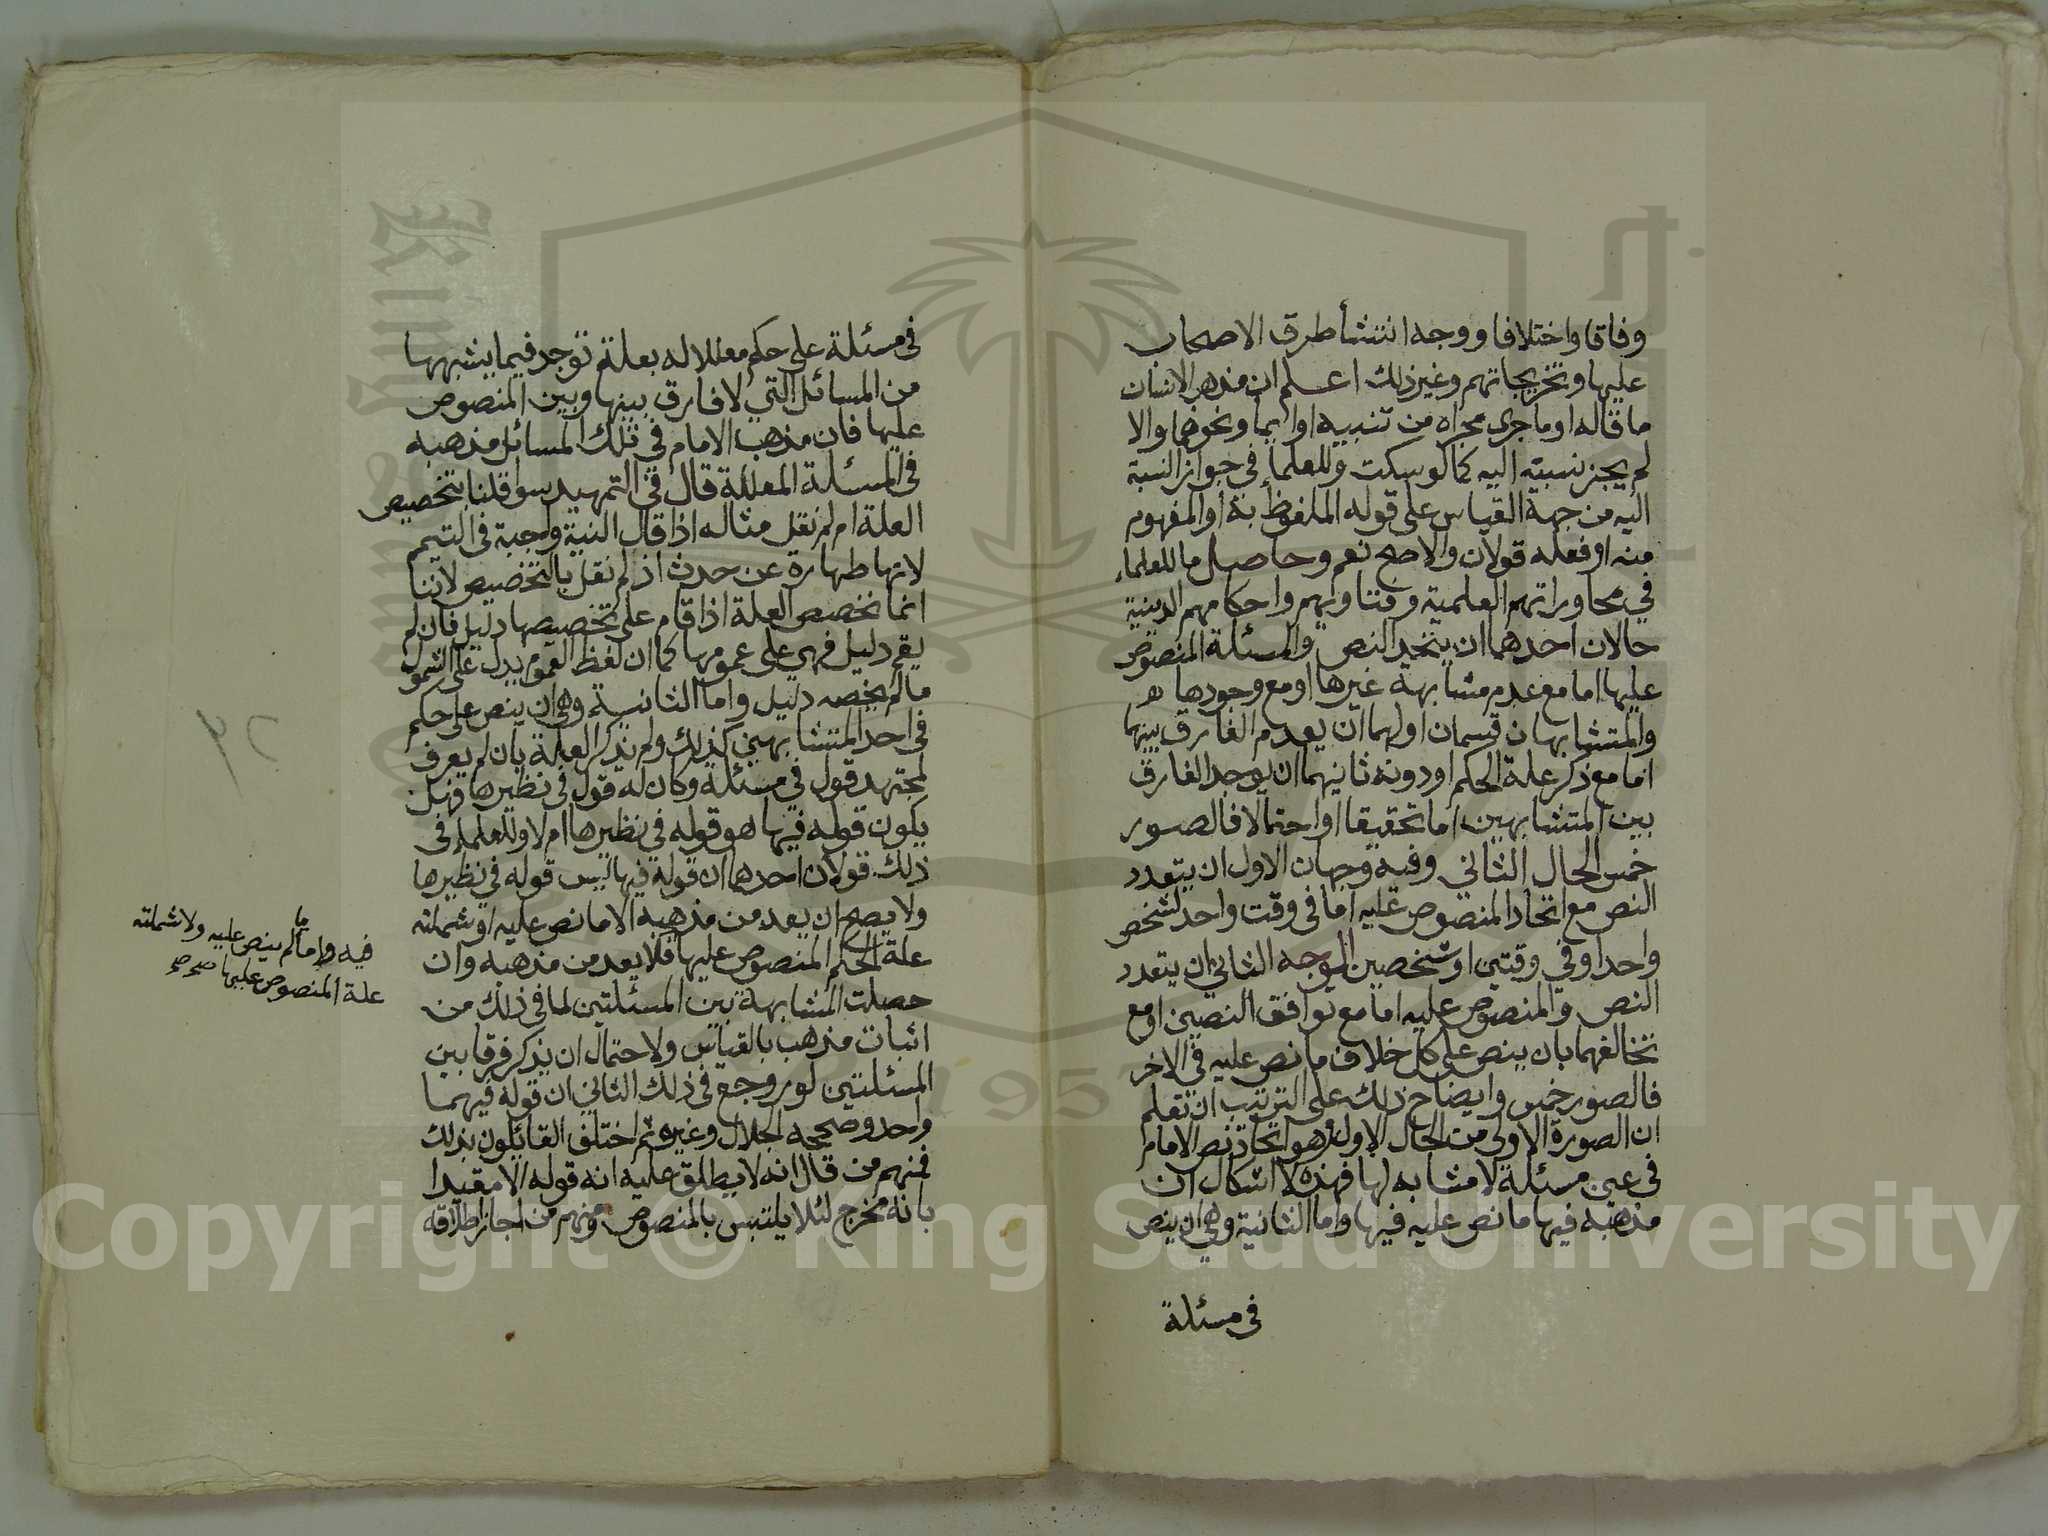 وفاقا واختلافا ووجه انتشأ طرق الاصحاب
عليها وتخريجاتهم وغير ذلك اعلم ان مذهب الانسان
ما قاله او ما جرى مجراه من تنبيه او ايما ونحوهما والا
لم يجز نسبته اليه كما لو سكت وللعلماء في جواز النسبة
اليه من جهة القياس على قوله الملفوظ به او المفهوم
منه او فعله قولان والاصح نعم وحاصل ما للعلماء
في محاوراتهم العلمية وفتاويهم واحكامهم الدينية
حالان احدهما ان يتحد النص والمسئلة المنصوص
عليها اما مع عدم مشابهة غيرها او مع وجودها
والمتشابهان قسمان اولهما ان يعدم الفارق بينهما
اما مع ذكر علة الحكم او دونه ثانيهما ان يوجد الفارق
بين المتشابهين اما تحقيقا او احتمالا فالصور
خمس الحال الثاني وفيه وجهان الاول ان يتعدد
النص مع اتحاد المنصوص عليه اما في وقت واحد لشخص
واحد او في وقتين او شخصين الوجه الثاني ان يتعدد
النص والمنصوص عليه اما مع توافق النصين او مع
تخالفهما بان ينص على كل خلاف ما نص عليه في الاخر
فالصور خمس وايضاح ذلك على الترتيب ان تعلم
ان الصورة الاولى من الحال الاول وهو اتحاد نص الامام
في عين مسئلة لا مشابه لها فهذه لا اشكال ان
مذهبه فيها ما نص عليه فيها واما الثانية وهي ان ينص
في مسئلة
في مسئلة على حكم معللا له بعلة توجد فيما يشبهها
من المسائل التي لا فارق بينها وبين المنصوص
عليها فان مذهب الامام في تلك المسائل مذهبه
في المسئلة المعللة قال في التمهيد سوا قلنا بتخصيص
العلة ام لم نقل مثاله اذا قال النية واجبة في التيمم
لانها طهارة عن حدث اذ لم نقل بالتخصيص لاننا
انما نخصص العلة اذا قام على تخصيصها دليل فان لم
يقم دليل فهي على عمومها كما ان لفظ العموم يدل على الشمول
ما لم يخصه دليل واما الثانية وهي ان ينص على حكم
في احد المتشابهين كذلك ولم يذكر العلة بان لم يعرف
لمجتهد قول في مسئلة وكان له قول في نظيرها فهل
يكون قوله فيها هو قوله في نظيرها ام لا وللعلماء في
ذلك قولان احدهما ان قوله فيها ليس قوله في نظيرها
ولا يصح ان يعد من مذهبه الا ما نص عليه او شملته
علة الحكم المنصوص عليها فلا يعد من مذهبه وان
حصلت المشابهة بين المسئلتين لما في ذلك من
اثبات مذهب بالقياس ولاحتمال ان يذكر فرقا بين
المسئلتين لو روجع في ذلك الثاني ان قوله فيهما
واحد وصححه الجلال وغيره ثم اختلف القائلون بذلك
فمنهم من قال انه لا يطلق عليه انه قوله الا مقيدا
بانه مخرج لئلا يلتبس بالمنصوص ومنهم من اجاز اطلاقه
فيه واما ما لم ينص عليه ولا شملته
علة المنصوص عليها صح صح
Copyright © King Saud University
1957